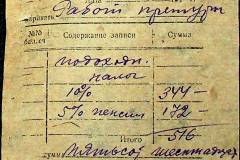 Работ претуры
№№ Содержание записи Сумма
подоходн.
налог
10% 344 —
5% пенсия 172 —
Итого 516
Пятьсот шестнадцать